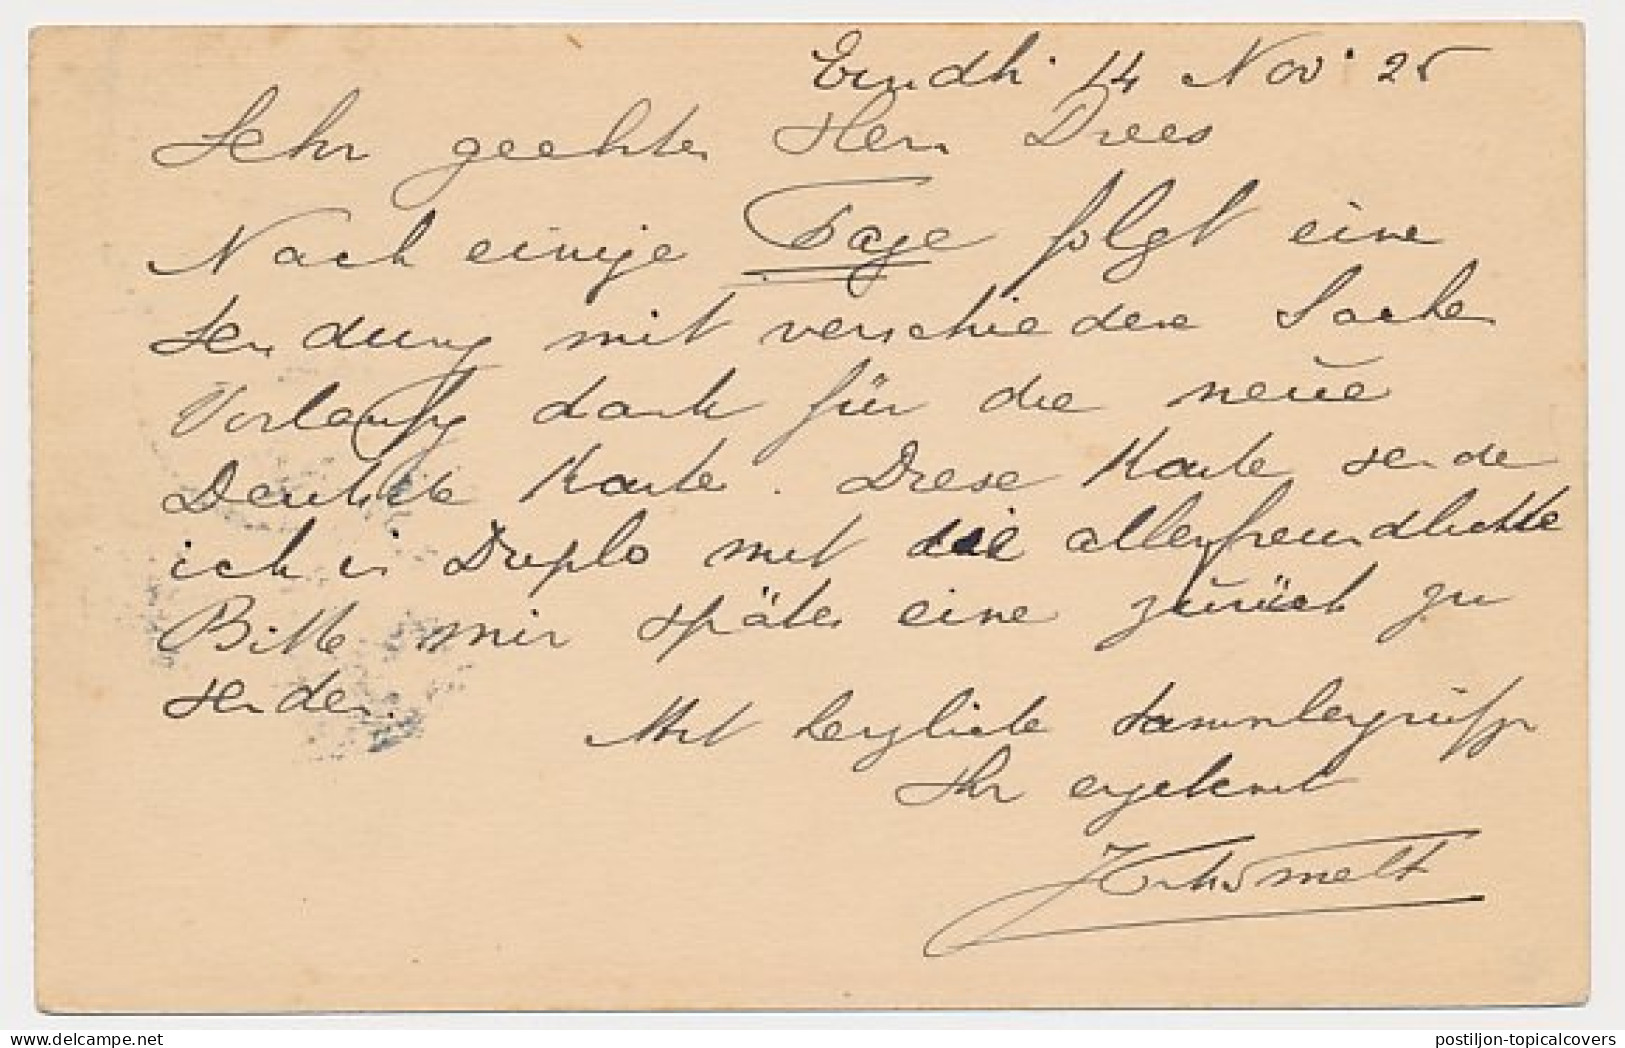 Eindh. 14 Nov. 25
Sehr geehrter Herr Drees
Nach einige Tage folgt eine
Sendung mit verschiedene Sachen
Vorlaufig dank für die neue
Deutsche Karte. Diese Karte sende
ich in Duplo mit die allerfreundlichste
Bitte mir später eine zurück zu
senden.
Mit herzliche Sammlergrüsse
Ihr ergebenst
postiljon-topicalcovers